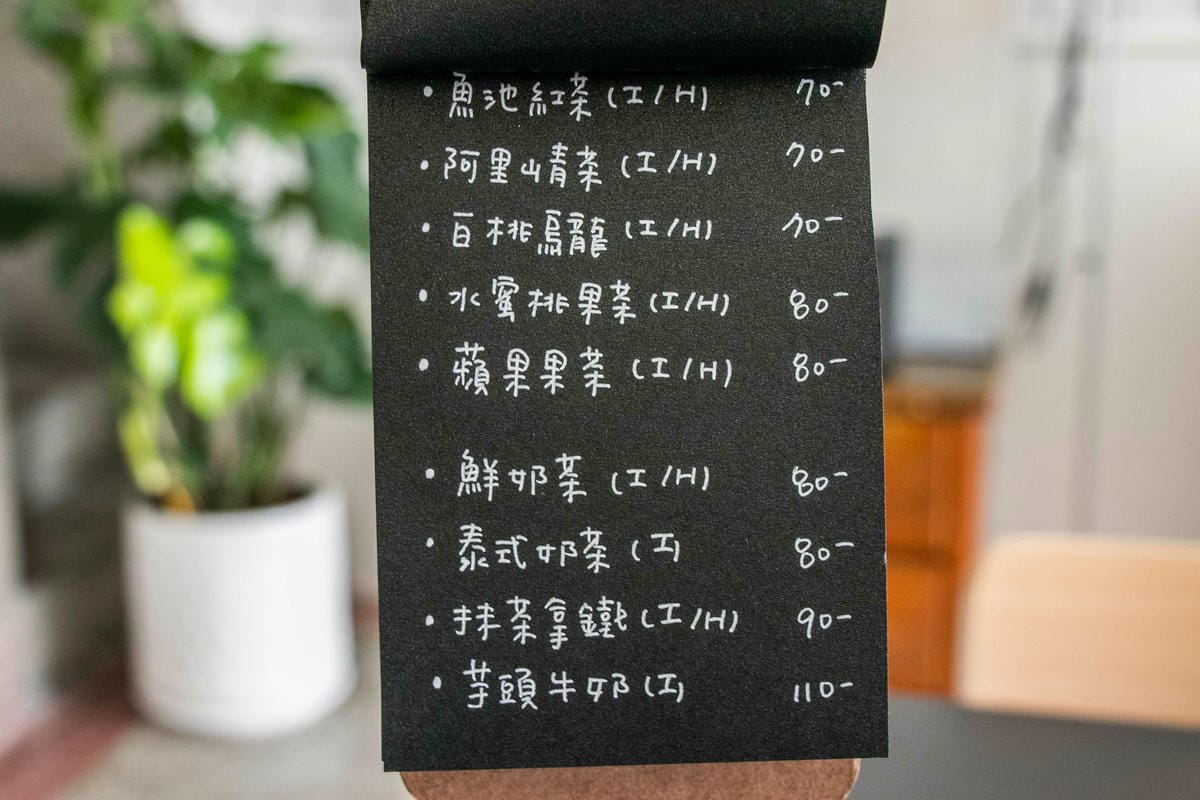 • 魚池紅茶 (I/H) 70-
• 阿里山青茶 (I/H) 70-
• 白桃烏龍 (I/H) 70-
• 水蜜桃果茶 (I/H) 80-
• 蘋果果茶 (I/H) 80-
• 鮮奶茶 (I/H) 80-
• 泰式奶茶 (I) 80-
• 抹茶拿鐵 (I/H) 90-
• 芋頭牛奶 (I) 110-